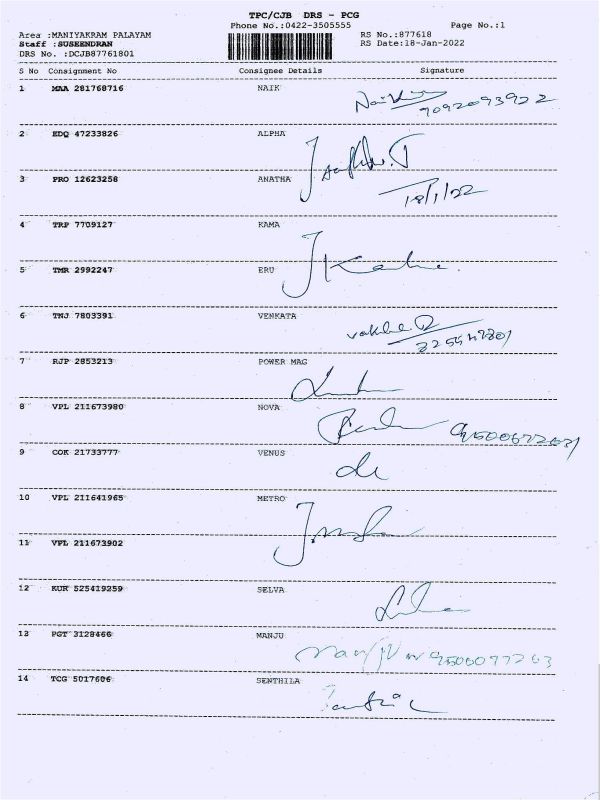 TPC/CJB DRS - PCG
Phone No.:0422-3505555 Page No.:1
Area :MANIYAKRAM PALAYAM RS No.:877618
Staff :SUSEENDRAN RS Date:18-Jan-2022
DRS No. :DCJB87761801
S No Consignment No Consignee Details Signature
1 MAA 281768716 NAIK
7092093922
2 EDQ 47233826 ALPHA
3 PRO 12623258 ANATHA
18/1/22
4 TRP 7709127 KAMA
5 TMR 2992247 ERU
6 TNJ 7803391 VENKATA
7 RJP 2853213 POWER MAG
8 VPL 211673980 NOVA
9 COK 21733777 VENUS
10 VPL 211641965 METRO
11 VPL 211673902
12 KUR 525419259 SELVA
13 PGT 3128466 MANJU
14 TCG 5017606 SENTHILA